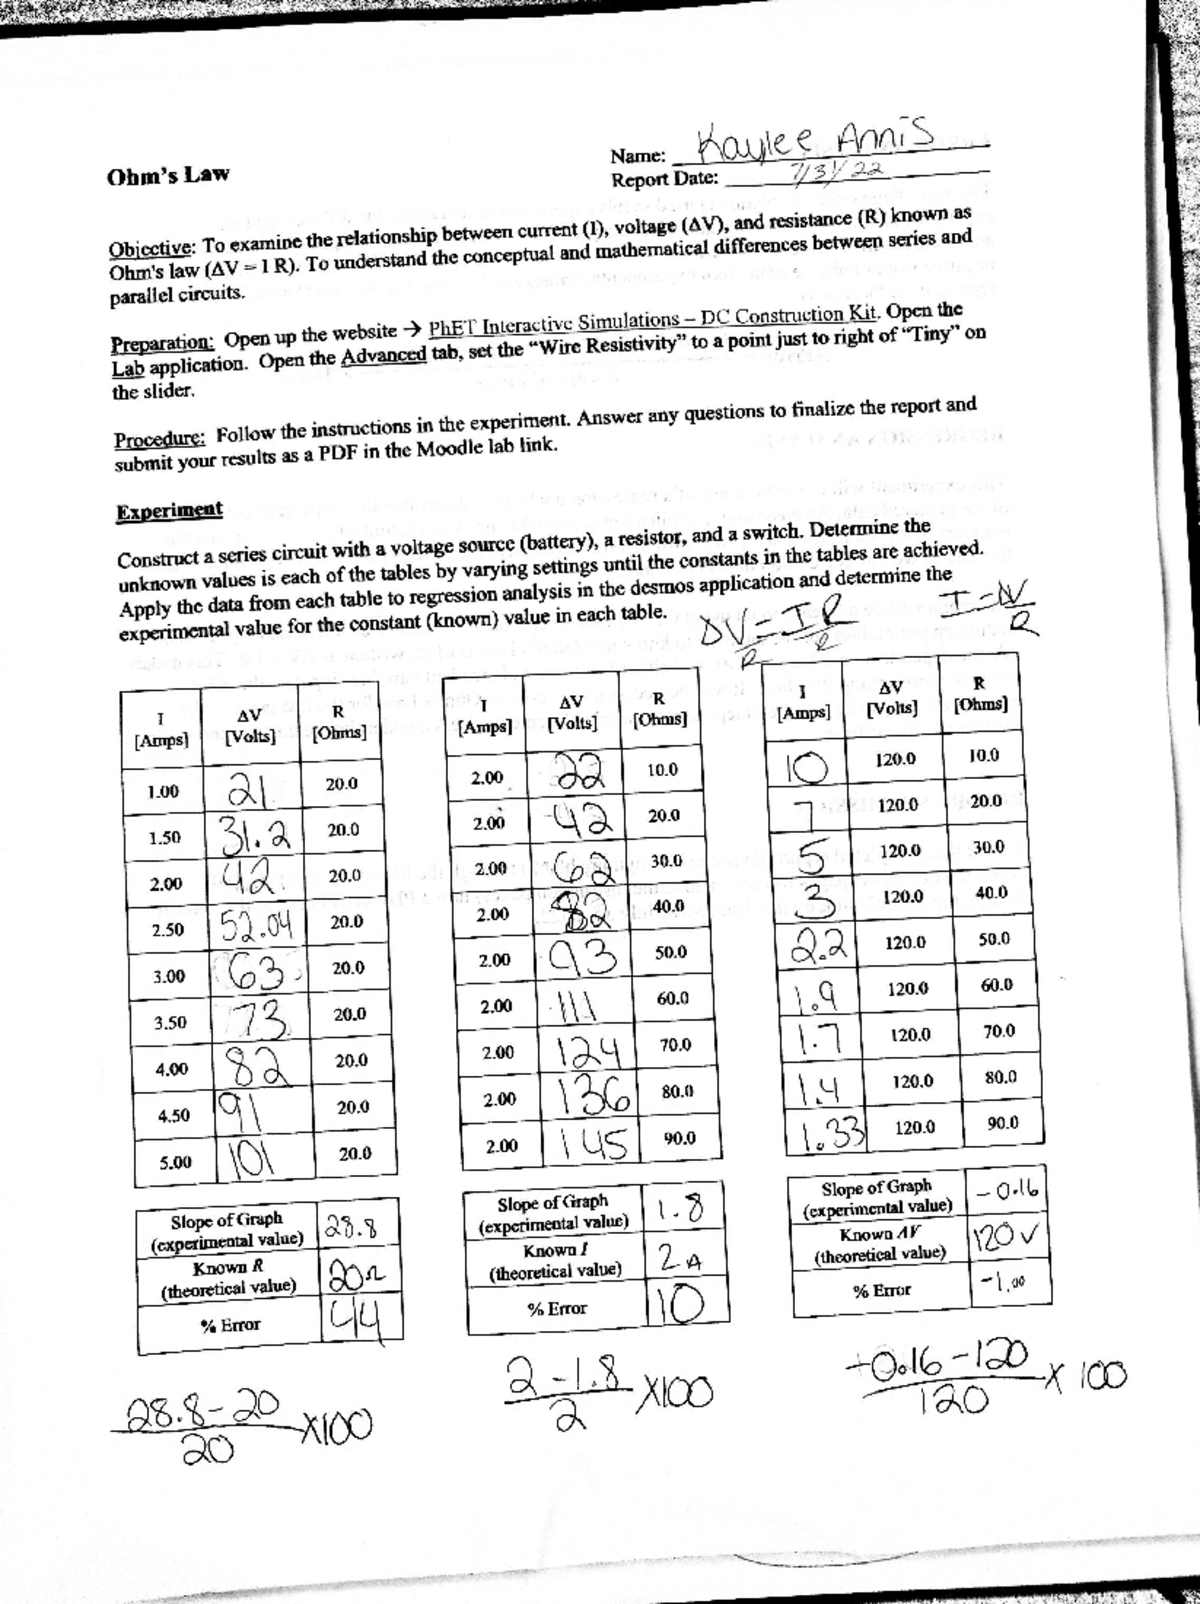 Name: Kaylee Annis
Ohm's Law
Report Date: 7/31/22
Objective: To examine the relationship between current (I), voltage (ΔV), and resistance (R) known as
Ohm's law (ΔV = I R). To understand the conceptual and mathematical differences between series and
parallel circuits.
Preparation: Open up the website → PhET Interactive Simulations – DC Construction Kit. Open the
Lab application. Open the Advanced tab, set the “Wire Resistivity” to a point just to right of “Tiny” on
the slider.
Procedure: Follow the instructions in the experiment. Answer any questions to finalize the report and
submit your results as a PDF in the Moodle lab link.
Experiment
Construct a series circuit with a voltage source (battery), a resistor, and a switch. Determine the
unknown values is each of the tables by varying settings until the constants in the tables are achieved.
Apply the data from each table to regression analysis in the desmos application and determine the
experimental value for the constant (known) value in each table.
ΔV = IR I = ΔV
R R R
I ΔV R
[Amps] [Volts] [Ohms]
1.00 21 20.0
1.50 31.2 20.0
2.00 42 20.0
2.50 52.04 20.0
3.00 63 20.0
3.50 73 20.0
4.00 82 20.0
4.50 91 20.0
5.00 101 20.0
Slope of Graph
(experimental value) 28.8
Known R
(theoretical value) 20Ω
% Error 44
28.8-20
20 X100
I ΔV R
[Amps] [Volts] [Ohms]
2.00 22 10.0
2.00 42 20.0
2.00 62 30.0
2.00 82 40.0
2.00 93 50.0
2.00 111 60.0
2.00 124 70.0
2.00 136 80.0
2.00 145 90.0
Slope of Graph
(experimental value) 1.8
Known I
(theoretical value) 2A
% Error 10
2-1.8
2 X100
I ΔV R
[Amps] [Volts] [Ohms]
10 120.0 10.0
7 120.0 20.0
5 120.0 30.0
3 120.0 40.0
2.2 120.0 50.0
1.9 120.0 60.0
1.7 120.0 70.0
1.4 120.0 80.0
1.33 120.0 90.0
Slope of Graph
(experimental value) -0.16
Known ΔV
(theoretical value) 120V
% Error -1.00
-0.16-120
120 X 100